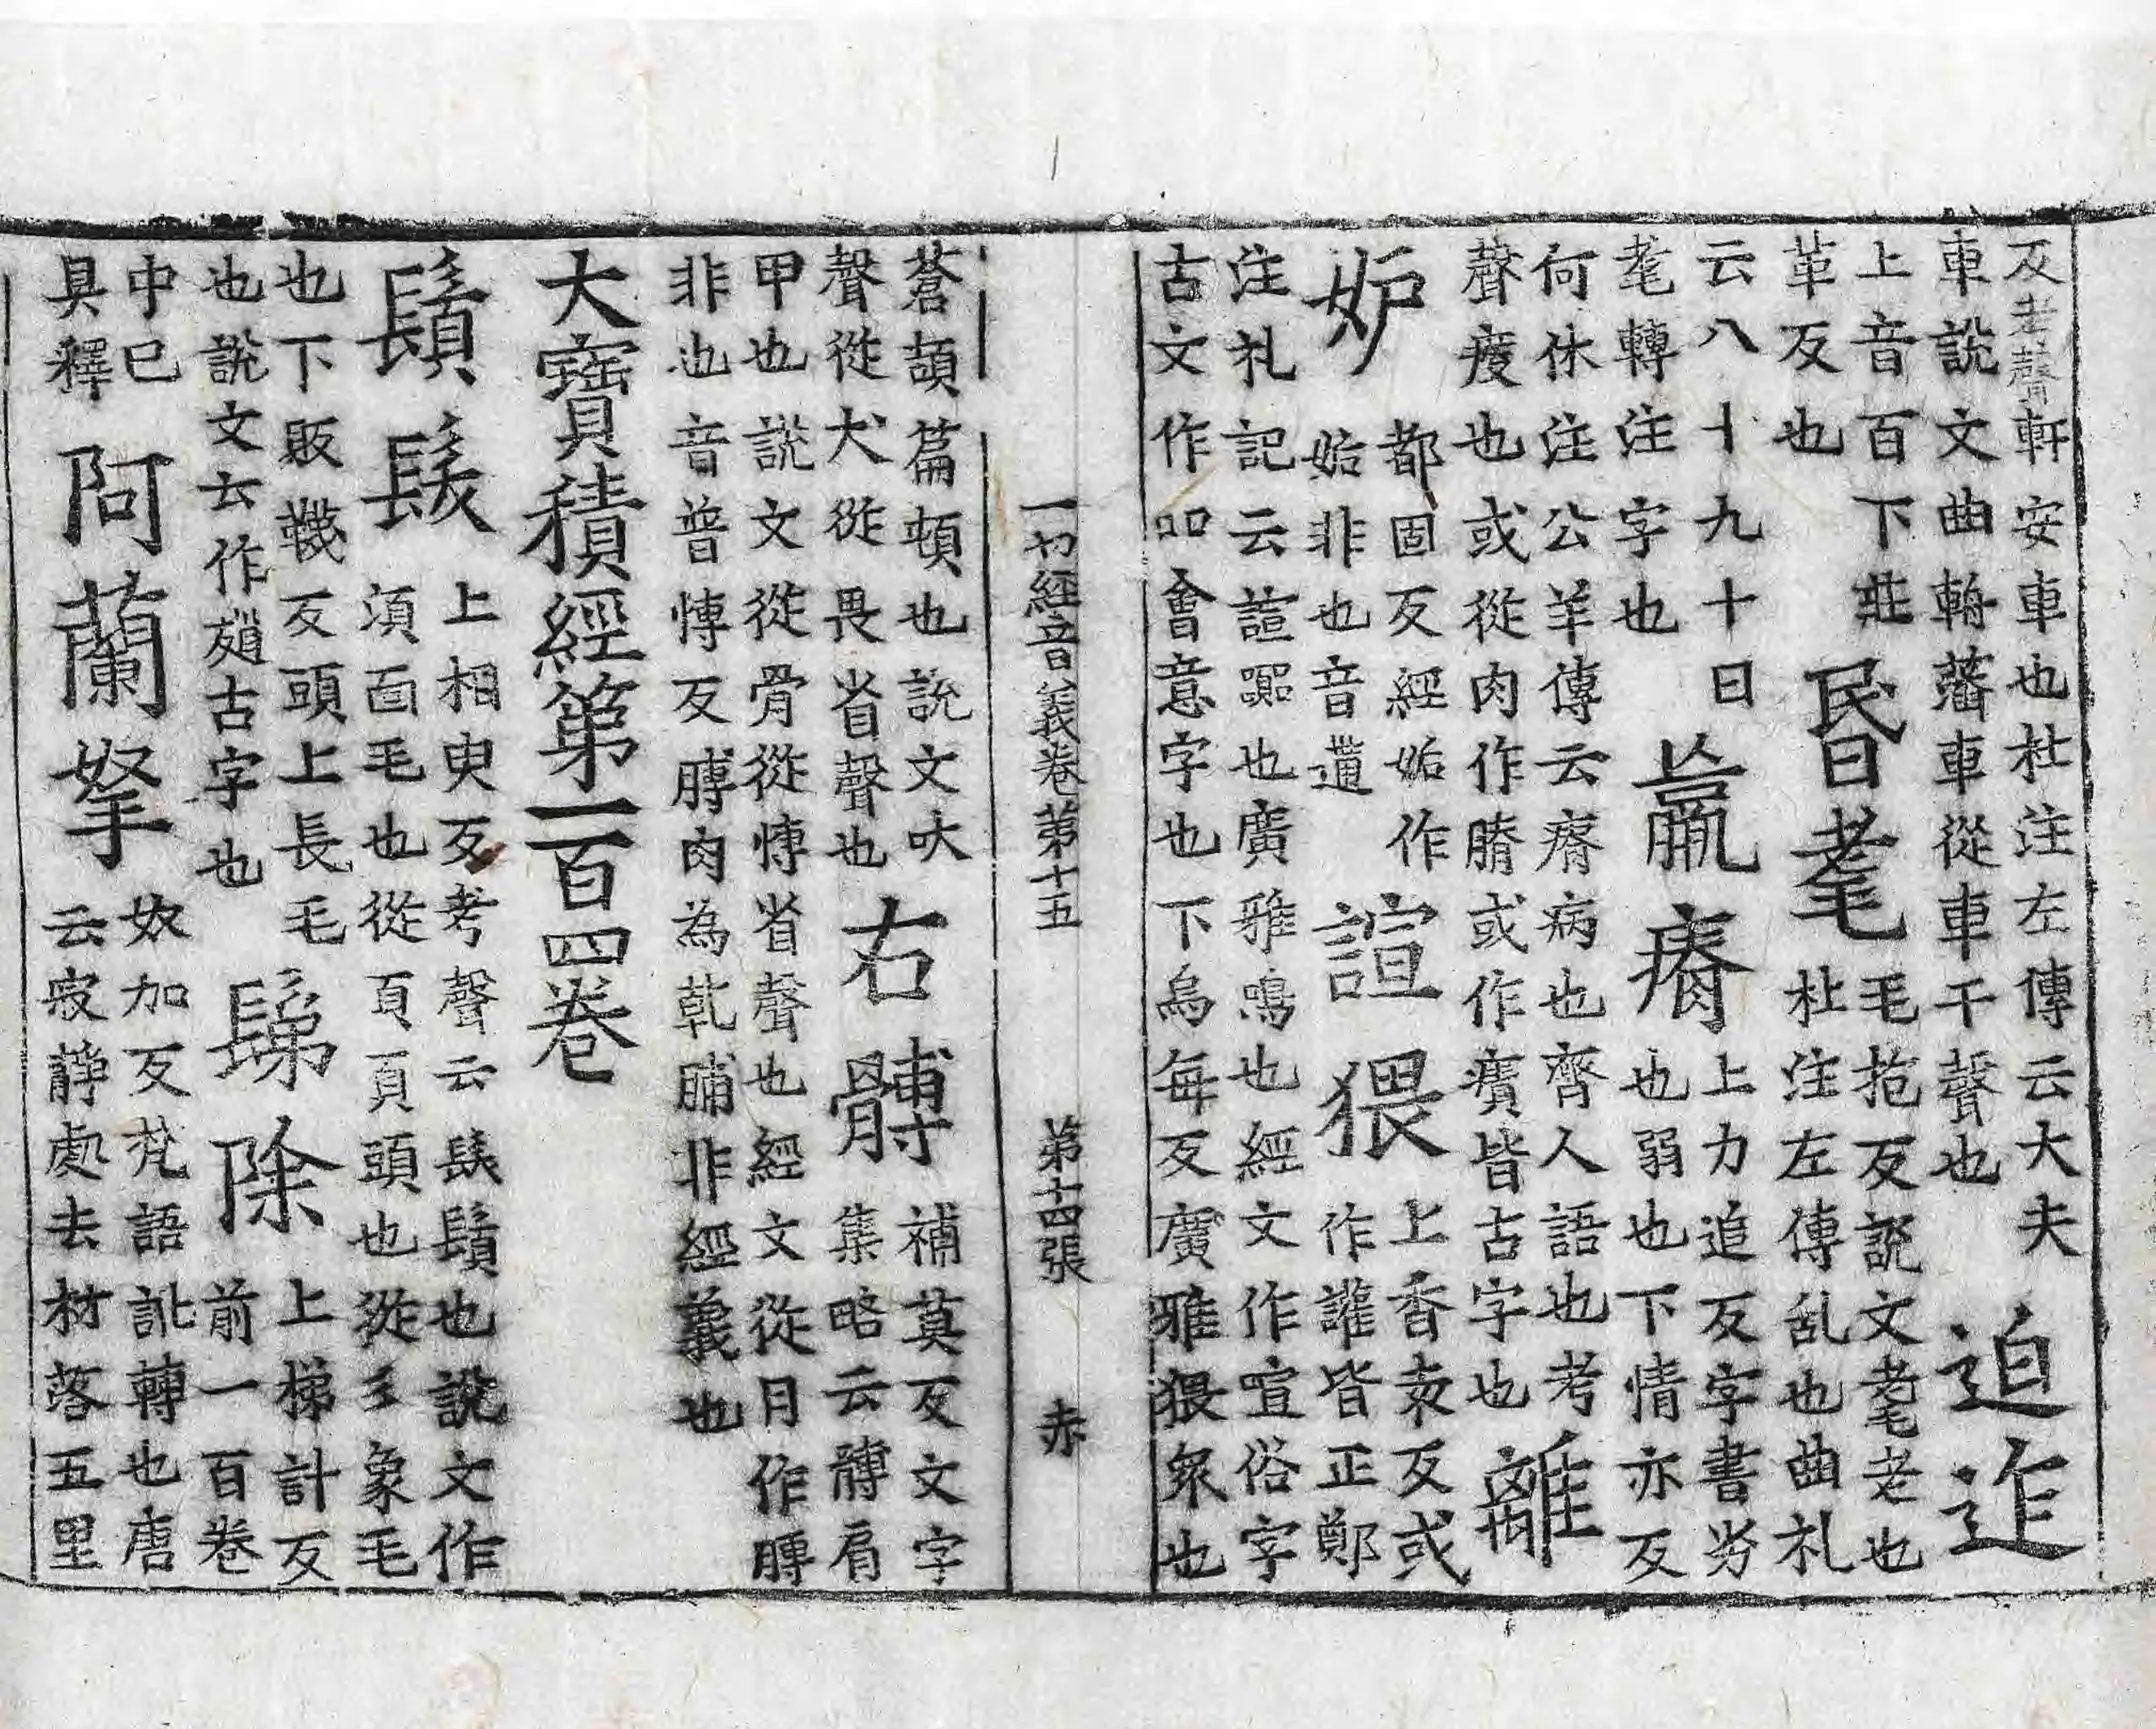 反考聲軒安車也杜注左傳云大夫
車說文曲輈藩車從車干聲也
迫迮
上音百下莊
革反也
昬耄
毛抱反說文耄老也
杜注左傳乱也曲礼
云八十九十曰
耄轉注字也
羸瘠
上力追反字書劣
也弱也下情亦反
何休注公羊傳云瘠病也齊人語也考
聲瘦也或從肉作膌或作㾊皆古字也
離
妒
都固反經妬作
妬非也音遘
諠猥
上香袁反或
作讙皆正鄭
注礼記云諠囂也廣雅鳴也經文作喧俗字
古文作吅會意字也下烏每反廣雅猥衆也
一切經音義卷第十五 第十四張 赤
蒼頡篇頓也說文吠
聲從犬從畏省聲也
右髆
補莫反文字
集略云髆肩
甲也說文從骨從愽省聲也經文從月作膊
非也音普愽反膊肉為乹脯非經義也
大寶積經第一百四卷
鬚髮
上相臾反考聲云䰅鬚也說文作
須面毛也從頁頁頭也從彡象毛
也下販韈反頭上長毛
也說文云作䫙古字也
鬀除
上梯計反
前一百卷
中已
具釋
阿蘭拏
奴加反梵語訛轉也唐
云寂靜處去村落五里